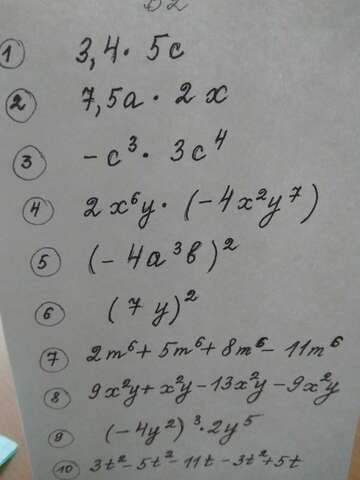 В2
1 3,4 · 5c
2 7,5a · 2x
3 -c³ · 3c⁴
4 2x⁶y · (-4x²y⁷)
5 (-4a³b)²
6 (7y)²
7 2m⁶ + 5m⁶ + 8m⁶ - 11m⁶
8 9x²y + x²y - 13x²y - 9x²y
9 (-4y²)³ · 2y⁵
10 3t² - 5t² - 11t - 3t² + 5t